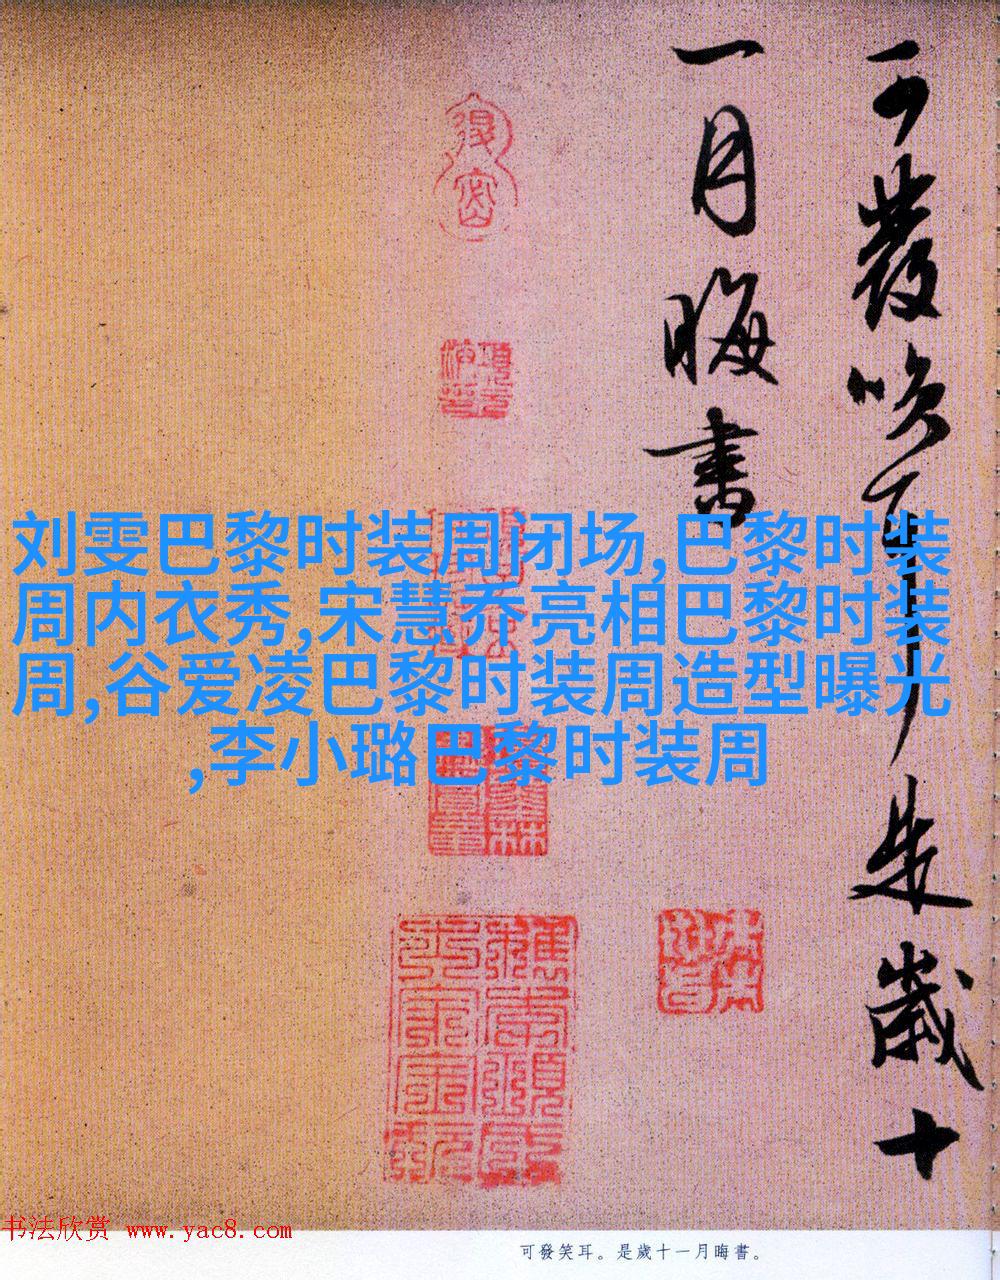 可發笑耳是歲十
一月晦書
刘雯巴黎时装周闭场,巴黎时装
周内衣秀,宋慧乔亮相巴黎时装
周,谷爱凌巴黎时装周造型曝光
,李小璐巴黎时装周
书法欣赏 www.yac8.com
可發笑耳。是歲十一月晦書。